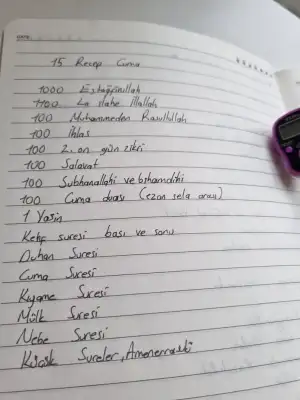 DATE:
15 Recep Cuma
1000 Estağfirullah
1100 La ilahe illallah
100 Muhammeden Rasullullah
100 İhlas
100 2. on gün zikri
100 Salavat
100 Subhanallahi ve bihamdihi
100 Cuma duası (ezan sela arası)
1 Yasin
Kehf suresi başı ve sonu
Duhan Suresi
Cuma Suresi
Kıyame Suresi
Mülk Suresi
Nebe Suresi
Küçük Sureler, Amenerrasülü